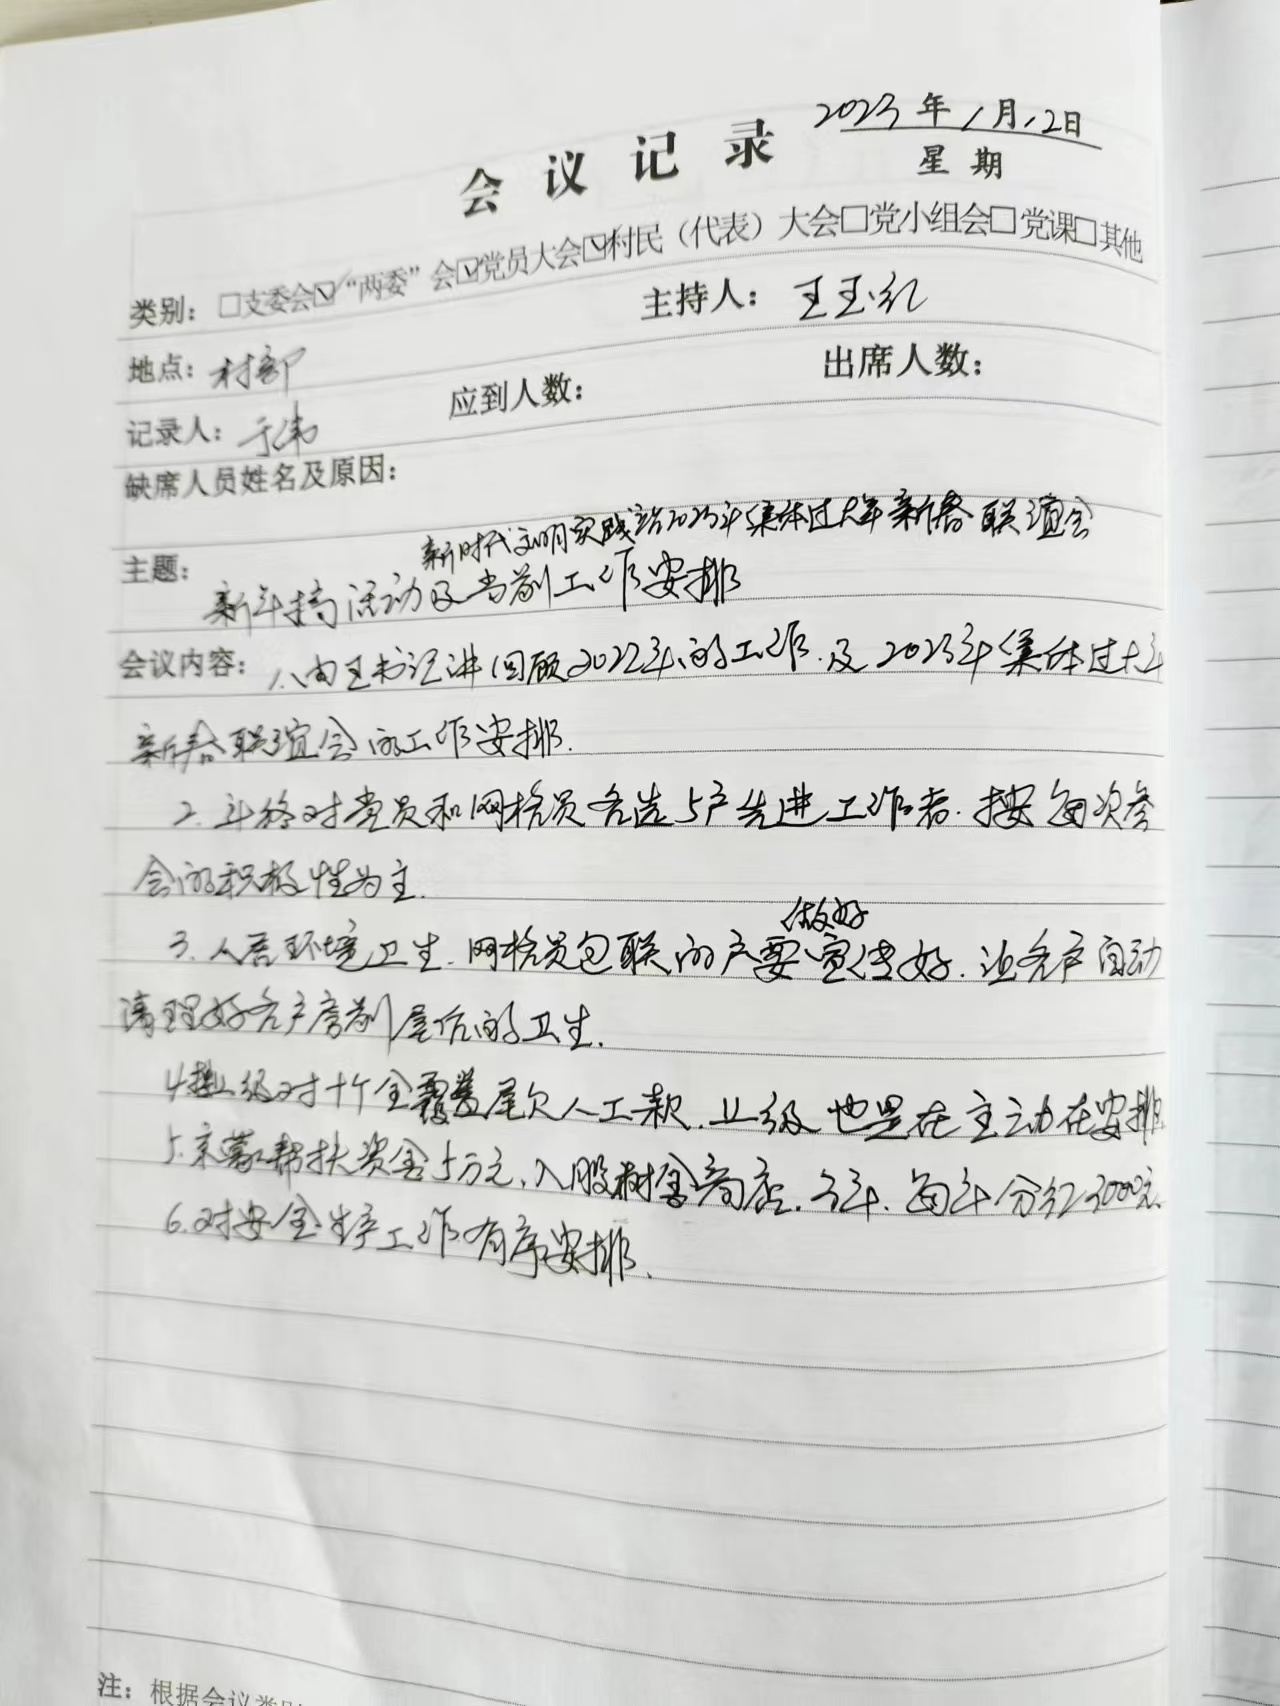 2023年1月12日
会议记录
星期
类别：□支委会☑“两委”会☑党员大会☑村民（代表）大会□党小组会□党课□其他
地点：村部 主持人：王玉红
记录人：于伟 应到人数： 出席人数：
缺席人员姓名及原因：
新时代文明实践站2023年集体过大年新春联谊会
主题：新年搞活动及当前工作安排
会议内容：1、由王书记讲回顾2022年的工作.及2023年集体过大年
新春联谊会的工作安排.
2.年终对党员和网格员各选5户先进工作者.按每次参
会的积极性为主.
做好
3.人居环境卫生.网格员包联的户要宣传好.让各户自动
清理好各户房前屋后的卫生.
4.上级对十个全覆盖尾欠人工款.上级也是在主动在安排
5.京蒙帮扶资金5万元.入股商店.3年.每年分红3000元.
6.对安全生产工作有序安排.
注：根据会议类别